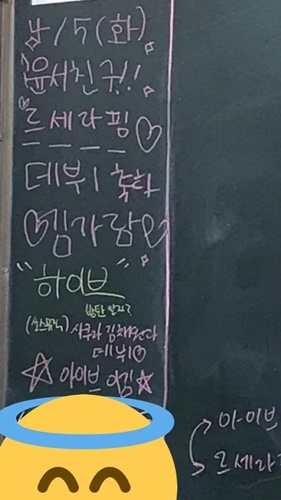 4/5(화)
윤서친귀!!
르세라핌♡
데뷔! 축하
♡김가람♡
"하이브"
방탄 알지?
(쏘스뮤직) 사쿠라 김채원다
데뷔♡
☆ 아이브 이김 ☆
아이브
르세라